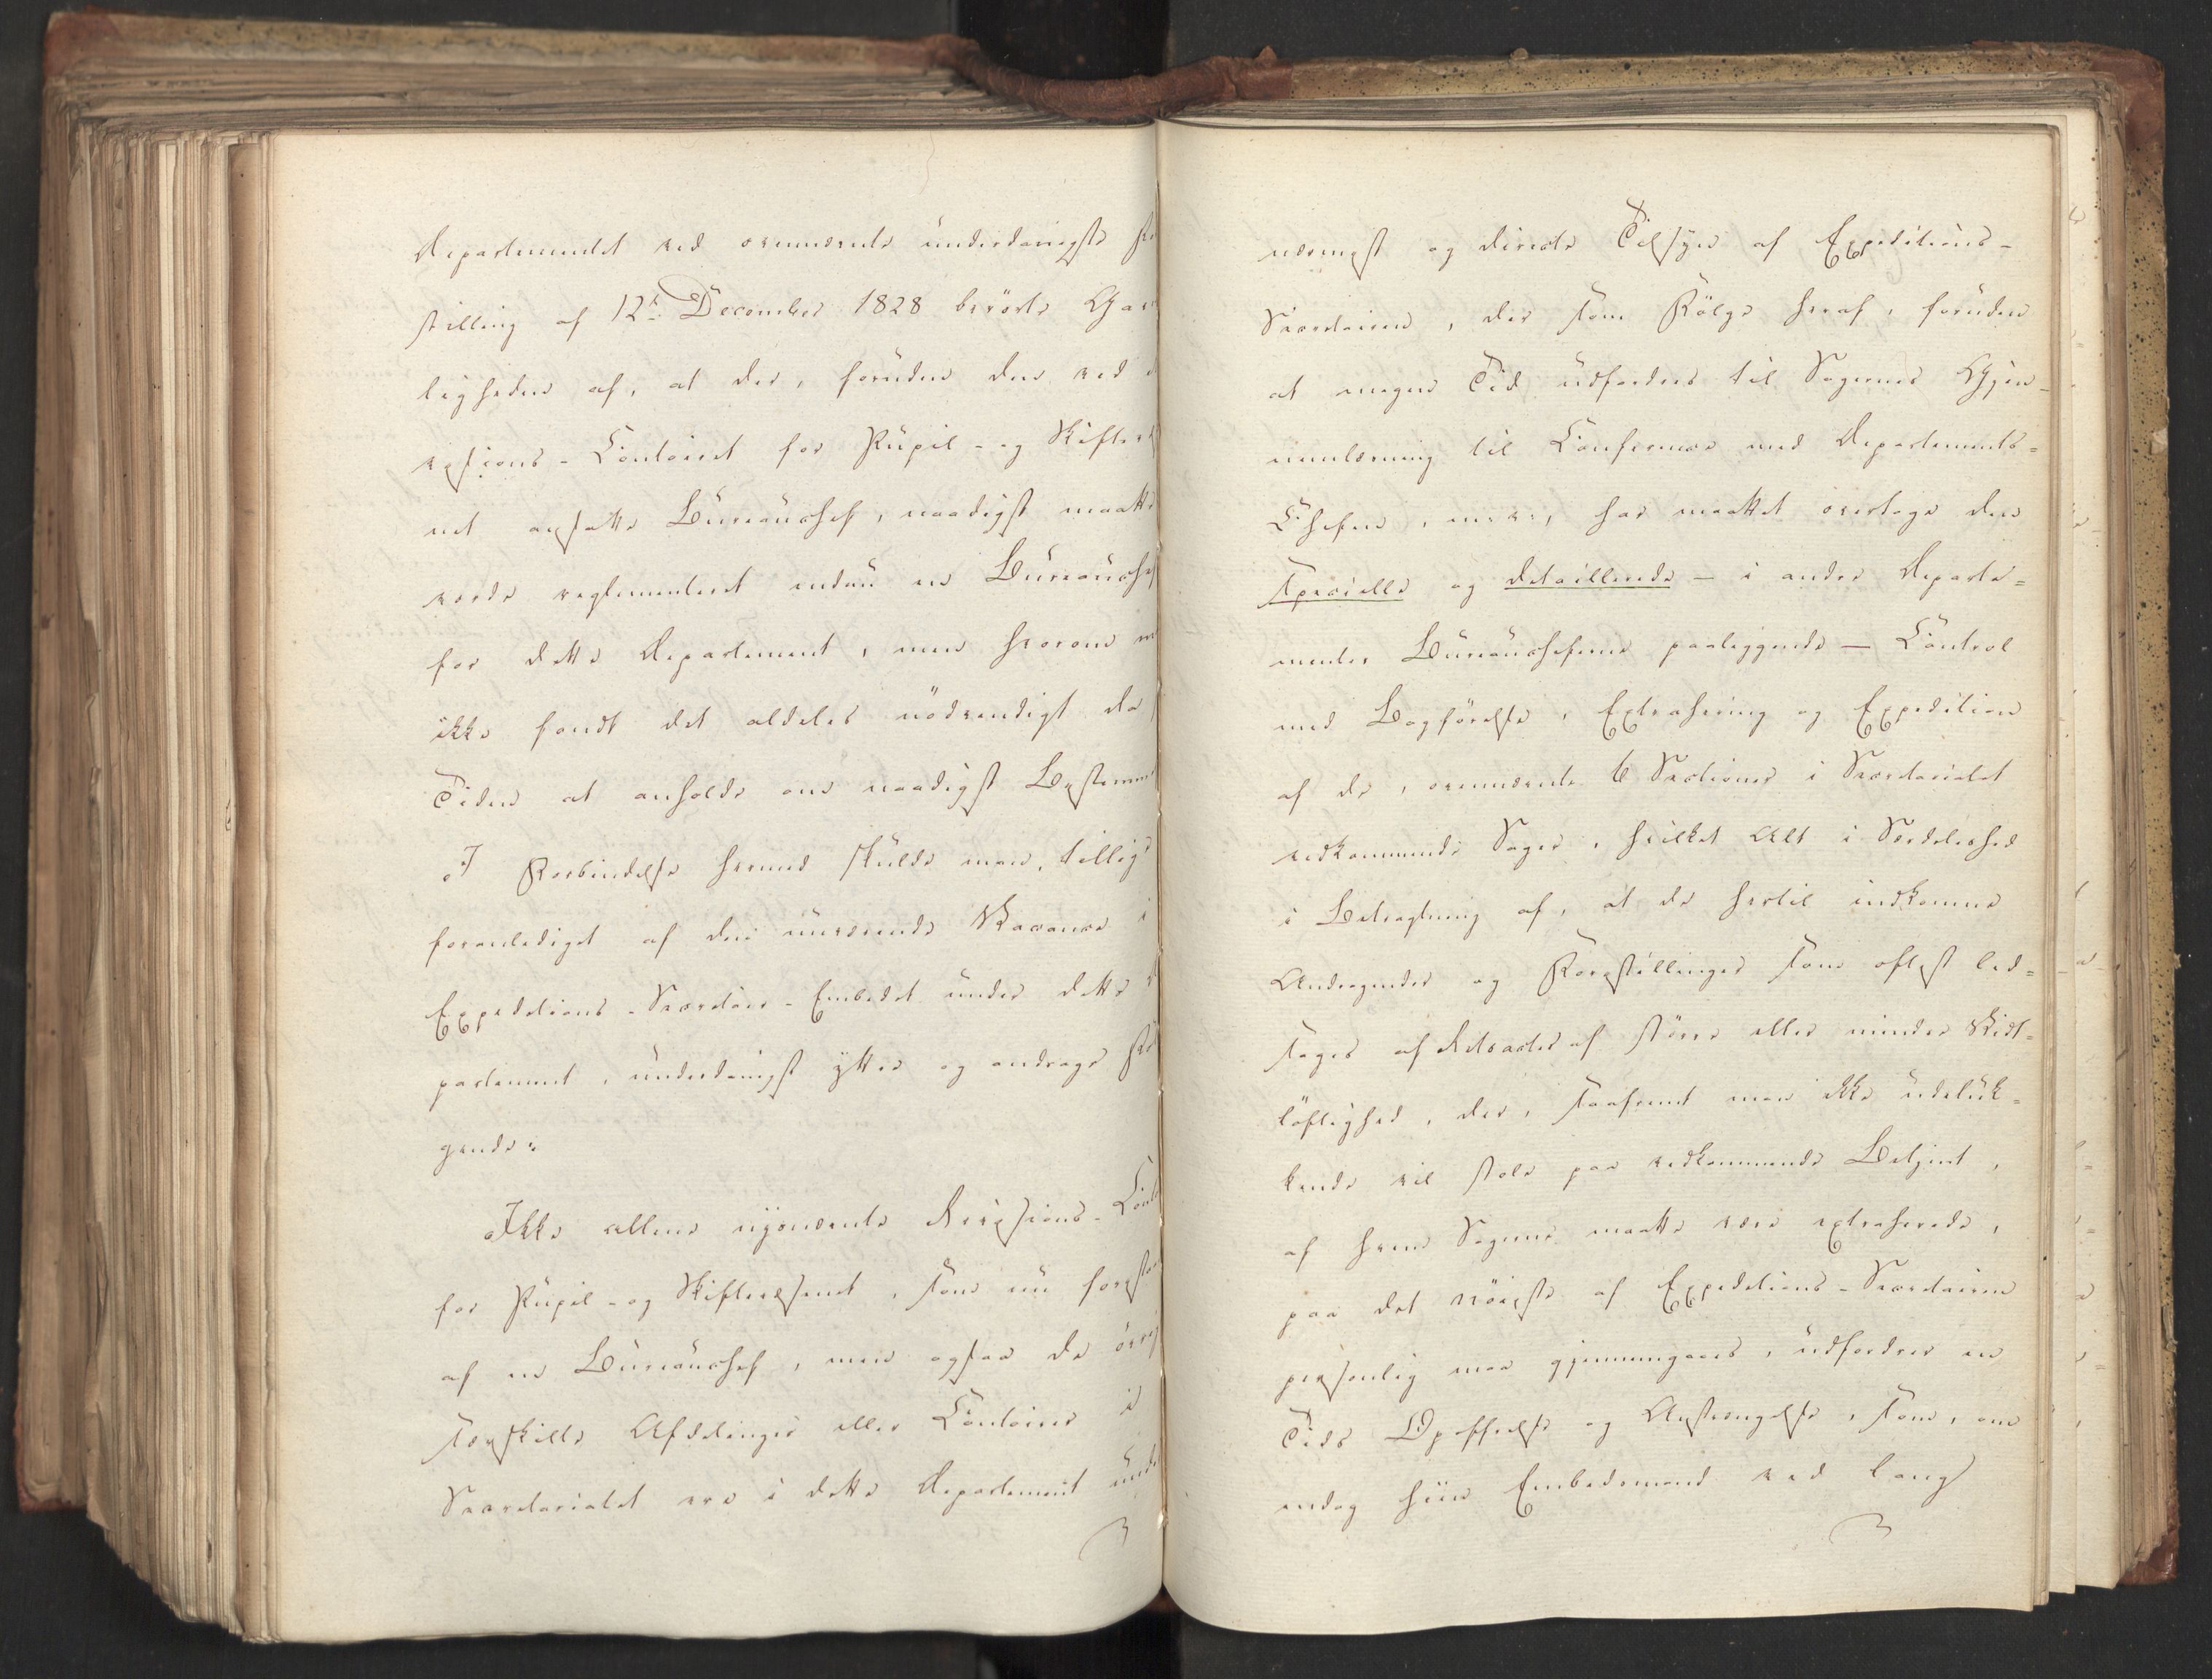 Departementet ved ovennævnte underdanigste Fo
stilling af 12te December 1828 berörte Gavn
ligheden af, at der, foruden den ved
visions-Contoiret for Pupil- og Skiftev
net ansatte Bureauchef, naadigst maatte
vorde reglementeret endnu en Bureauchef
for dette Departement, men hvorom m
ikke fandt det aldeles nödvendigt da
Tiden at anholde om naadigst Bestemm
I Forbindelse hermed skulde man, tillige
foranlediget af den nuværende Vacance i
Expeditions-Secretair-Embedet under dette
partement, underdanigst yttre og andrage Föl
gende:
Ikke allene nysnævnte Revisions-Cont
for Pupil- og Skiftevæsenet, som nu forestaa
af en Bureauchef, men ogsaa de övrig
særskilte Afdelinger eller Contoirer i
Secretariatet ere i dette Departement unde
nærmest og directe Tilsyn af Expeditions-
Secretairen, der som Fölge heraf, foruden
at megen Tid udfordres til Sagernes Gjen-
nemlæsning til Conference med Departements-
Chefen, m: v:, har maattet overtage den
specielle og detaillerede - i andre Departe-
menter Bureaucheferne paaliggende - Control
med Bogförelse, Extrahering og Expedition
af de, ovennævnte 6 Sectioner i Secretariatet
vedkommende Sager, hvilket Alt i Særdeleshed
i Betragtning af, at de hertil indkomne
Andragender og Forestillinger som oftest led-
sages af Retsacter af större eller mindre Vidt-
löftighed, der, saafremt man ikke udeluk-
kende vil stole paa vedkommende Betjent,
af hvem Sagerne maatte være extraherede,
paa det nöieste af Expeditions-Secretairen
personlig maa gjennemgaaes, udfordrer en
Tids Opoffrelse og Anstrengelse, som, om
endog hiin Embedsmand ved lang